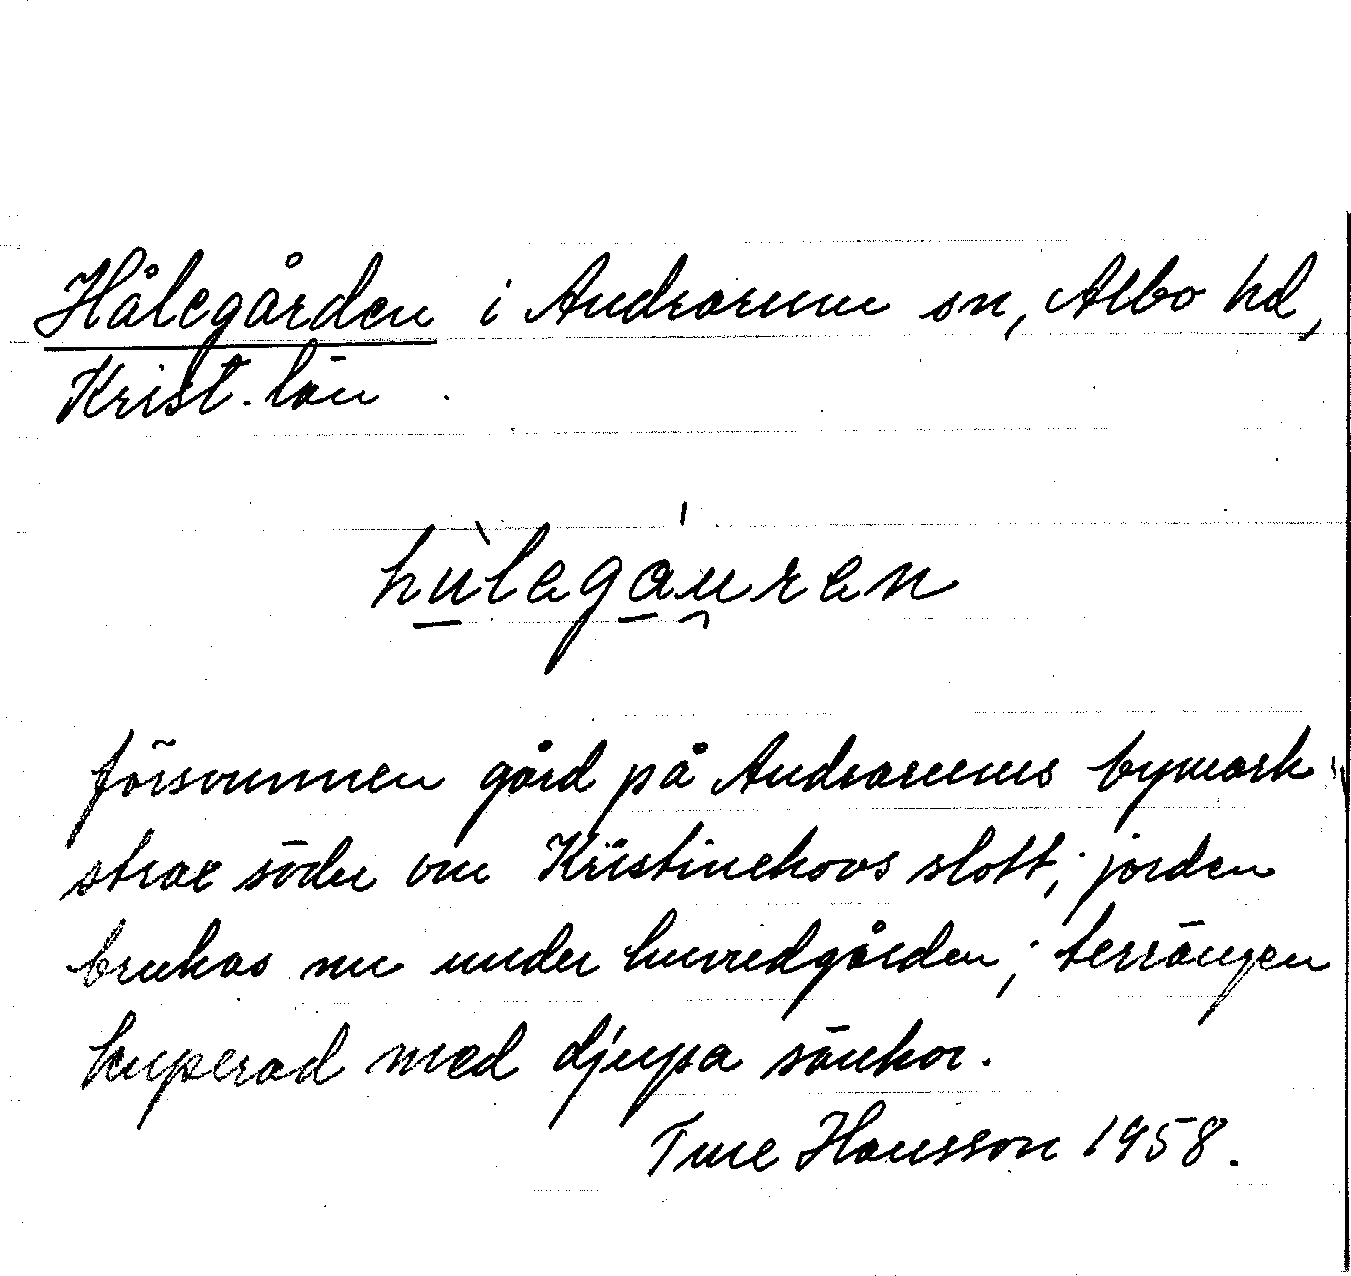 Hålegården i Andrarum sn, Albo hd,
Krist. län
hùlegáuren
försvunnen gård på Andrarums bymark
strax söder om Kristinehovs slott; jorden
brukas nu under huvudgården; terrängen
kuperad med djupa sänkor.
Ture Hansson 1958.